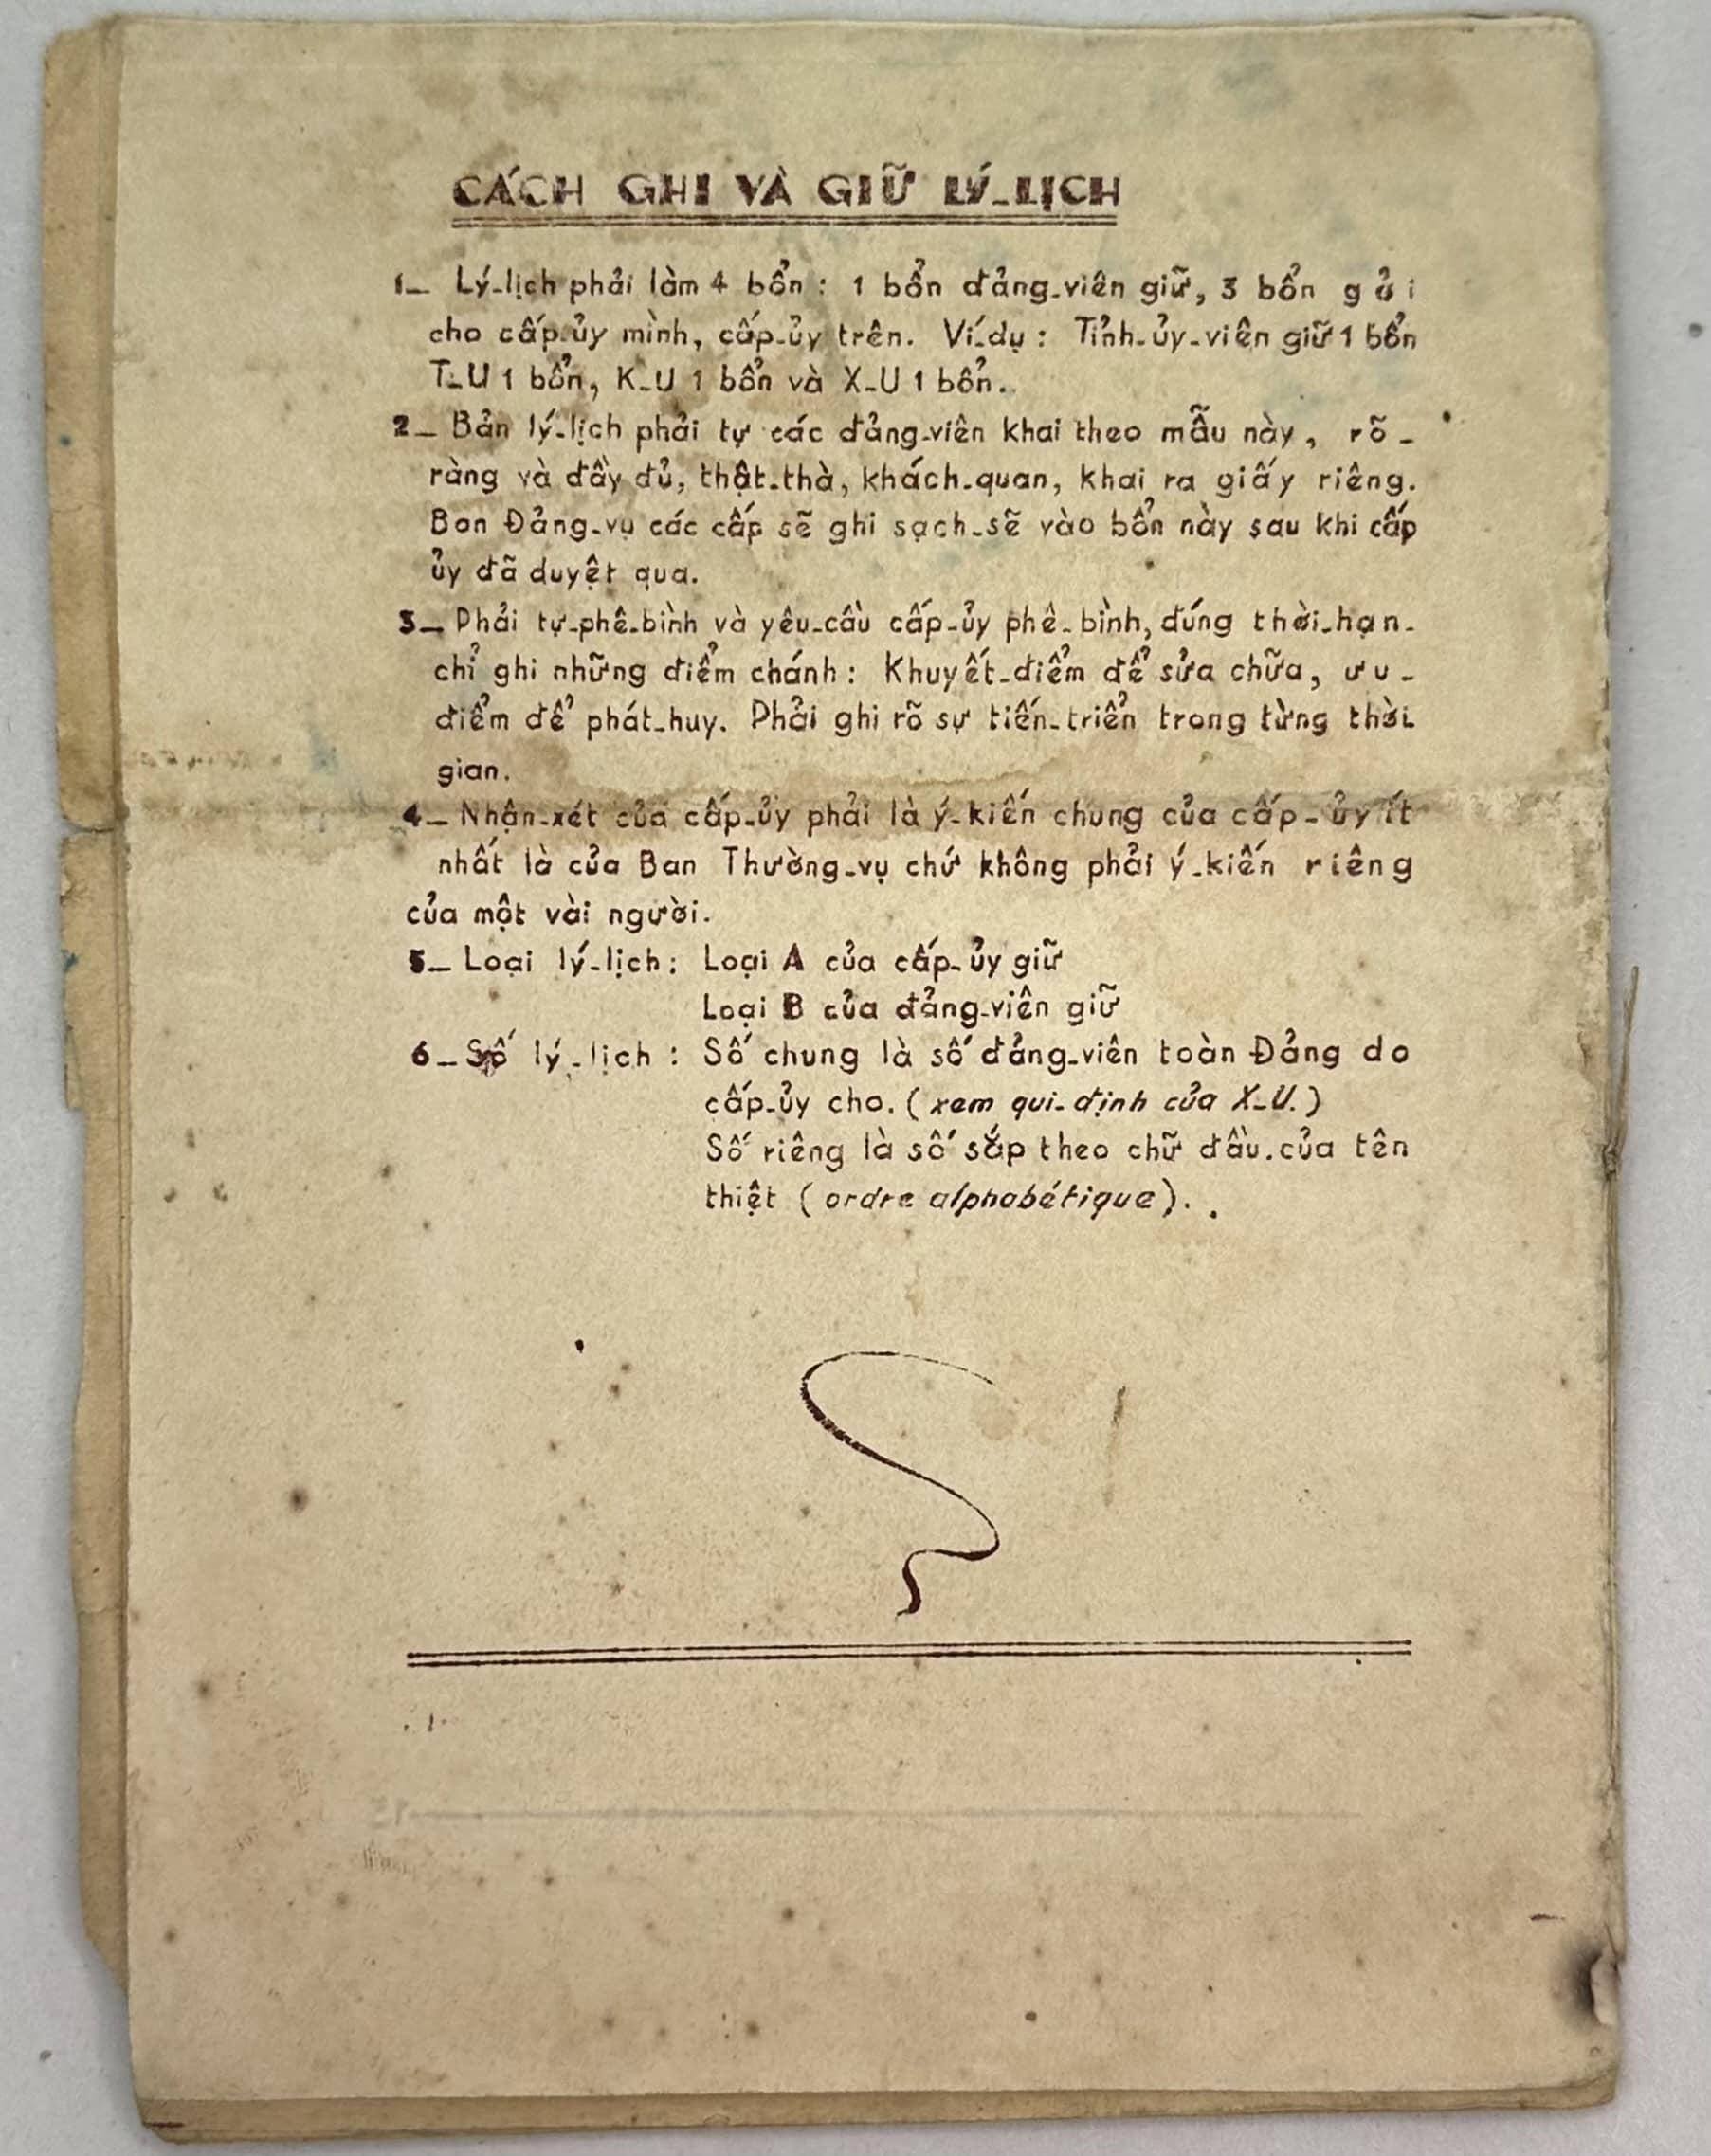 CÁCH GHI VÀ GIỮ LÝ-LỊCH
1_ Lý-lịch phải làm 4 bổn : 1 bổn đảng-viên giữ, 3 bổn gởi
cho cấp-ủy mình, cấp-ủy trên. Ví-dụ : Tỉnh-ủy-viên giữ 1 bổn
T-U 1 bổn, K-U 1 bổn và X-U 1 bổn.
2_ Bản lý-lịch phải tự các đảng-viên khai theo mẫu này, rõ-
ràng và đầy đủ, thật-thà, khách-quan, khai ra giấy riêng.
Ban Đảng-vụ các cấp sẽ ghi sạch-sẽ vào bổn này sau khi cấp
ủy đã duyệt qua.
3_ Phải tự-phê-bình và yêu-cầu cấp-ủy phê-bình, đúng thời-hạn-
chỉ ghi những điểm chánh : Khuyết-điểm để sửa chữa, ưu-
điểm để phát-huy. Phải ghi rõ sự tiến-triển trong từng thời
gian.
4_ Nhận-xét của cấp-ủy phải là ý-kiến chung của cấp-ủy ít
nhất là của Ban Thường-vụ chứ không phải ý-kiến riêng
của một vài người.
5_ Loại lý-lịch : Loại A của cấp-ủy giữ
Loại B của đảng-viên giữ
6_ Số lý-lịch : Số chung là số đảng-viên toàn Đảng do
cấp-ủy cho. (xem qui-định của X-U.)
Số riêng là số sắp theo chữ đầu của tên
thiệt (ordre alphabétique).